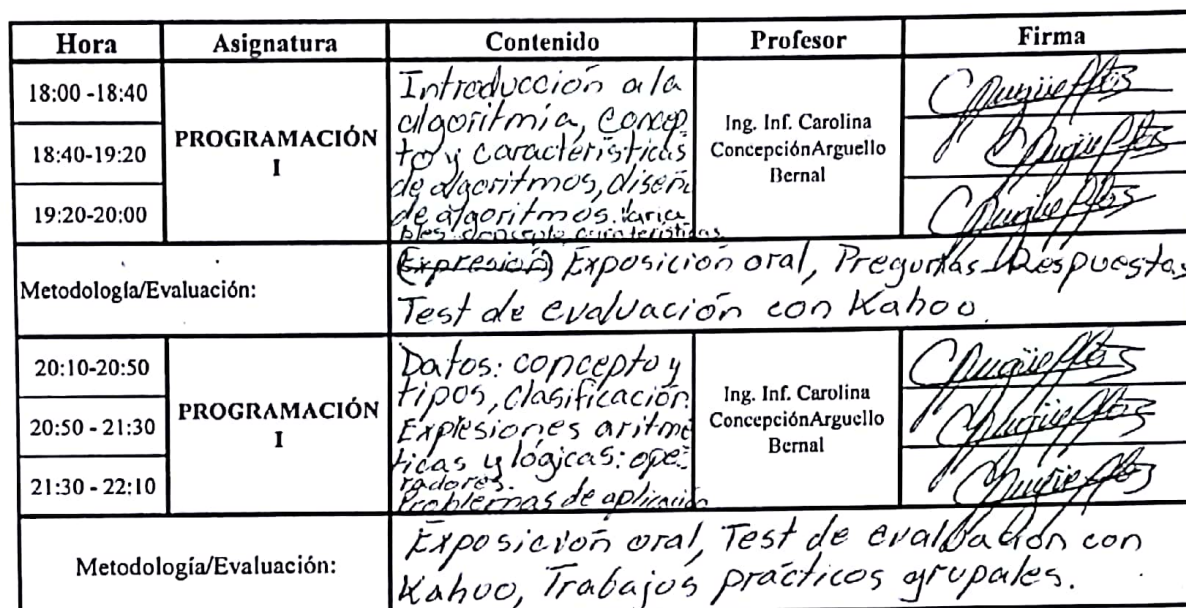 Hora Asignatura Contenido Profesor Firma
18:00 -18:40
18:40-19:20
19:20-20:00
PROGRAMACIÓN
I
Introducción a la
algoritmia, Concep
to y características
de algoritmos, diseñ
de algoritmos. Varia
bles concepto características
Ing. Inf. Carolina
ConcepciónArguello
Bernal
Metodología/Evaluación:
(Expresión) Exposición oral, Preguntas-Respuestas
Test de evaluación con Kahoo.
20:10-20:50
20:50 - 21:30
21:30 - 22:10
PROGRAMACIÓN
I
Datos: concepto y
tipos, clasificación.
Expresiones aritmé
ticas y lógicas: ope-
radores.
Problemas de aplicación
Ing. Inf. Carolina
ConcepciónArguello
Bernal
Metodología/Evaluación:
Exposición oral, Test de evaluación con
Kahoo, Trabajos prácticos grupales.